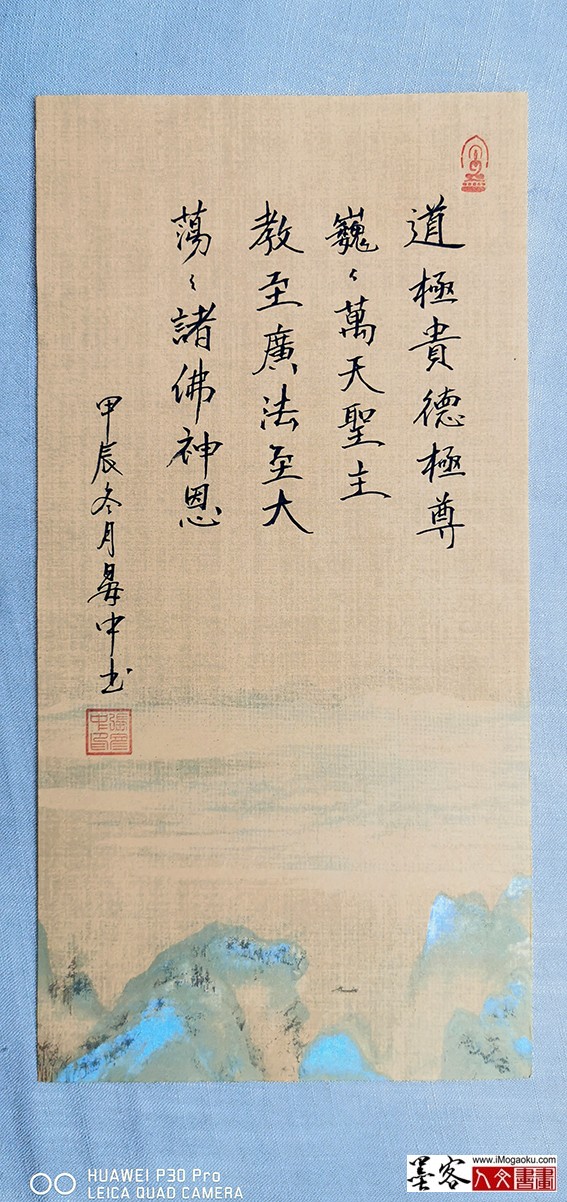 道極貴德極尊
巍〻萬天聖主
教至廣法至大
蕩〻諸佛神恩
甲辰冬月
中书
HUAWEI P30 Pro
LEICA QUAD CAMERA
www.iMogaoku.com
墨客
人文書畫